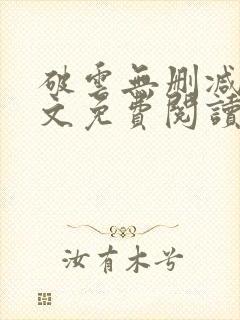 破雲無刪減
文免費閱讀
汝有木兮